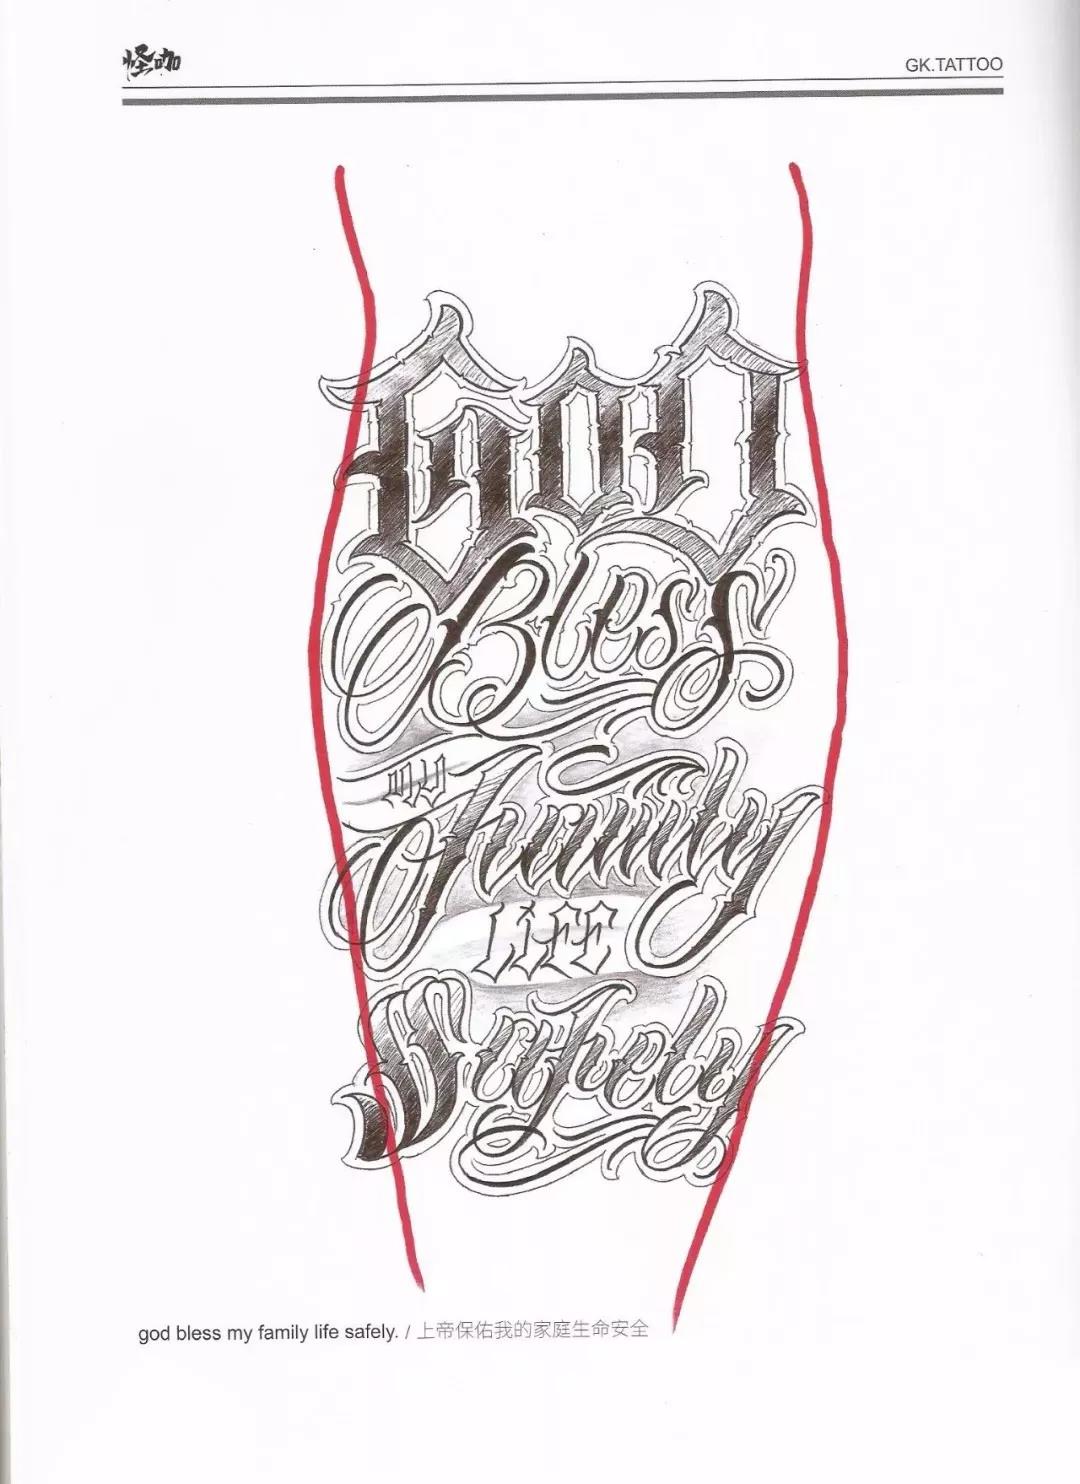 怪咖
GK.TATTOO
GOD
Bless
my
Family
LiFE
Safely
god bless my family life safely. / 上帝保佑我的家庭生命安全